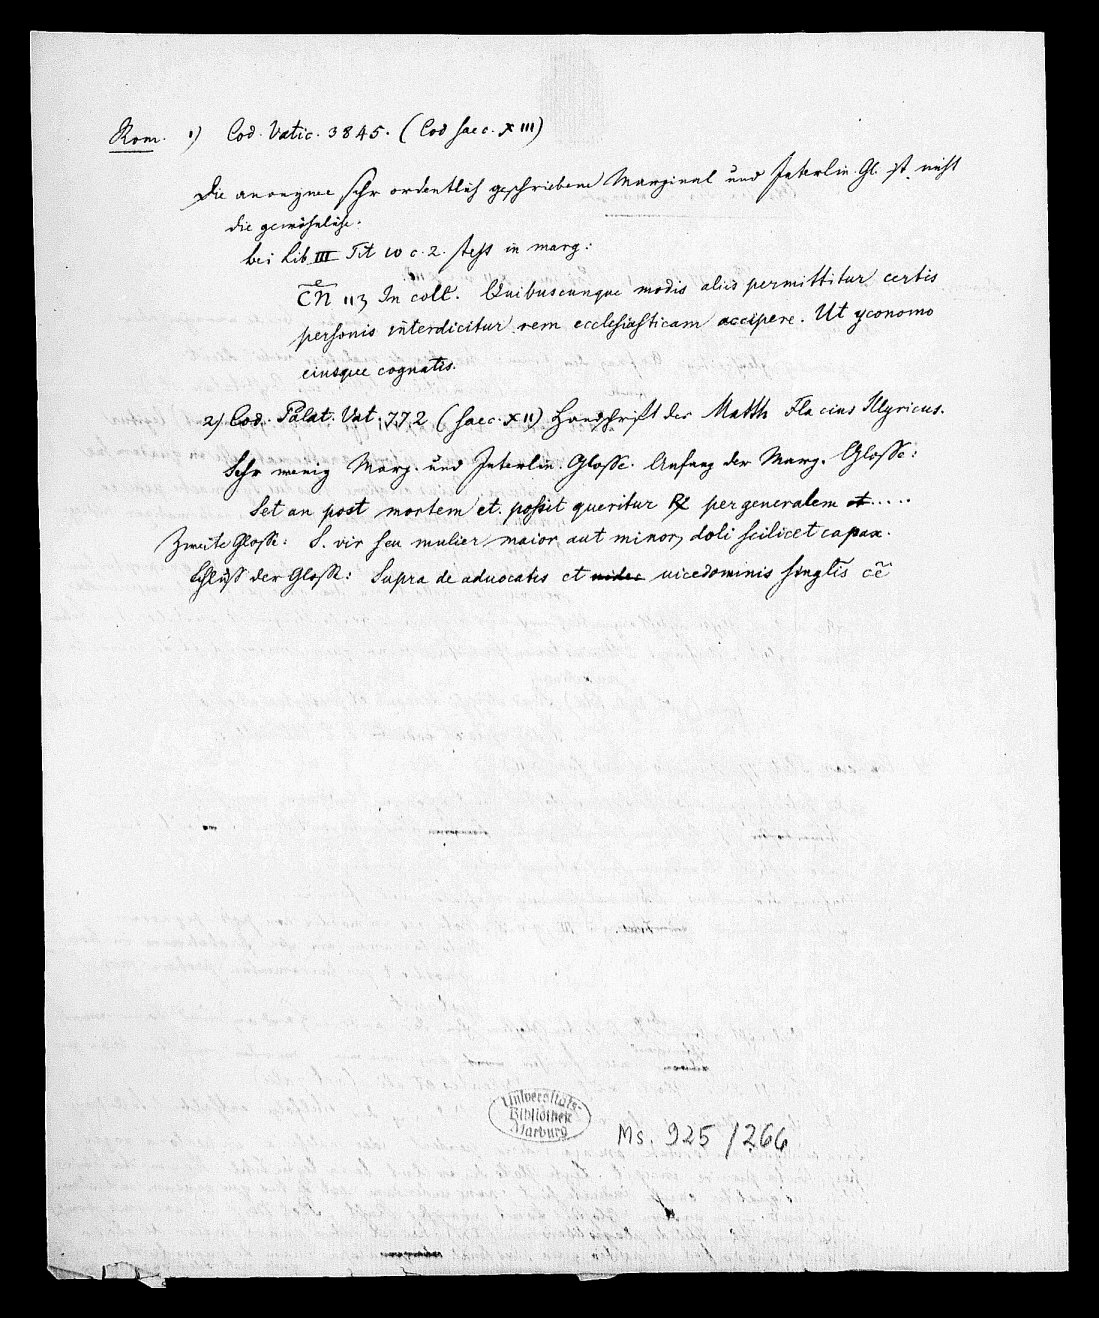 Rom. 1) Cod. Vatic. 3845. (Cod saec. XIII)
Die anonyme sehr ordentlich geschriebene Marginal und Interlin. Gl. ist nicht
die gewöhnliche.
bei Lib III Tit 10 c. 2. steht in marg:
In coll. Quibuscunque modis aliis permittitur certis
personis interdicitur rem ecclesiasticam accipere. Ut yconomo
eiusque cognatis.
2) Cod. Palat. Vat. 772 (saec. XII) Handschrift des Matth Flacius Illyricus.
Sehr wenig Marg. und Interlin. Glosse. Anfang der Marg. Glosse:
Set an post mortem et. possit queritur R per generalem et.....
Zweite Glosse: S. vir seu mulier, maior aut minor, doli scilicet capax.
Schluss der Glosse: Supra de aduocatis et uicedominis
Universitäts-
Bibliothek
Marburg
Ms. 925/266